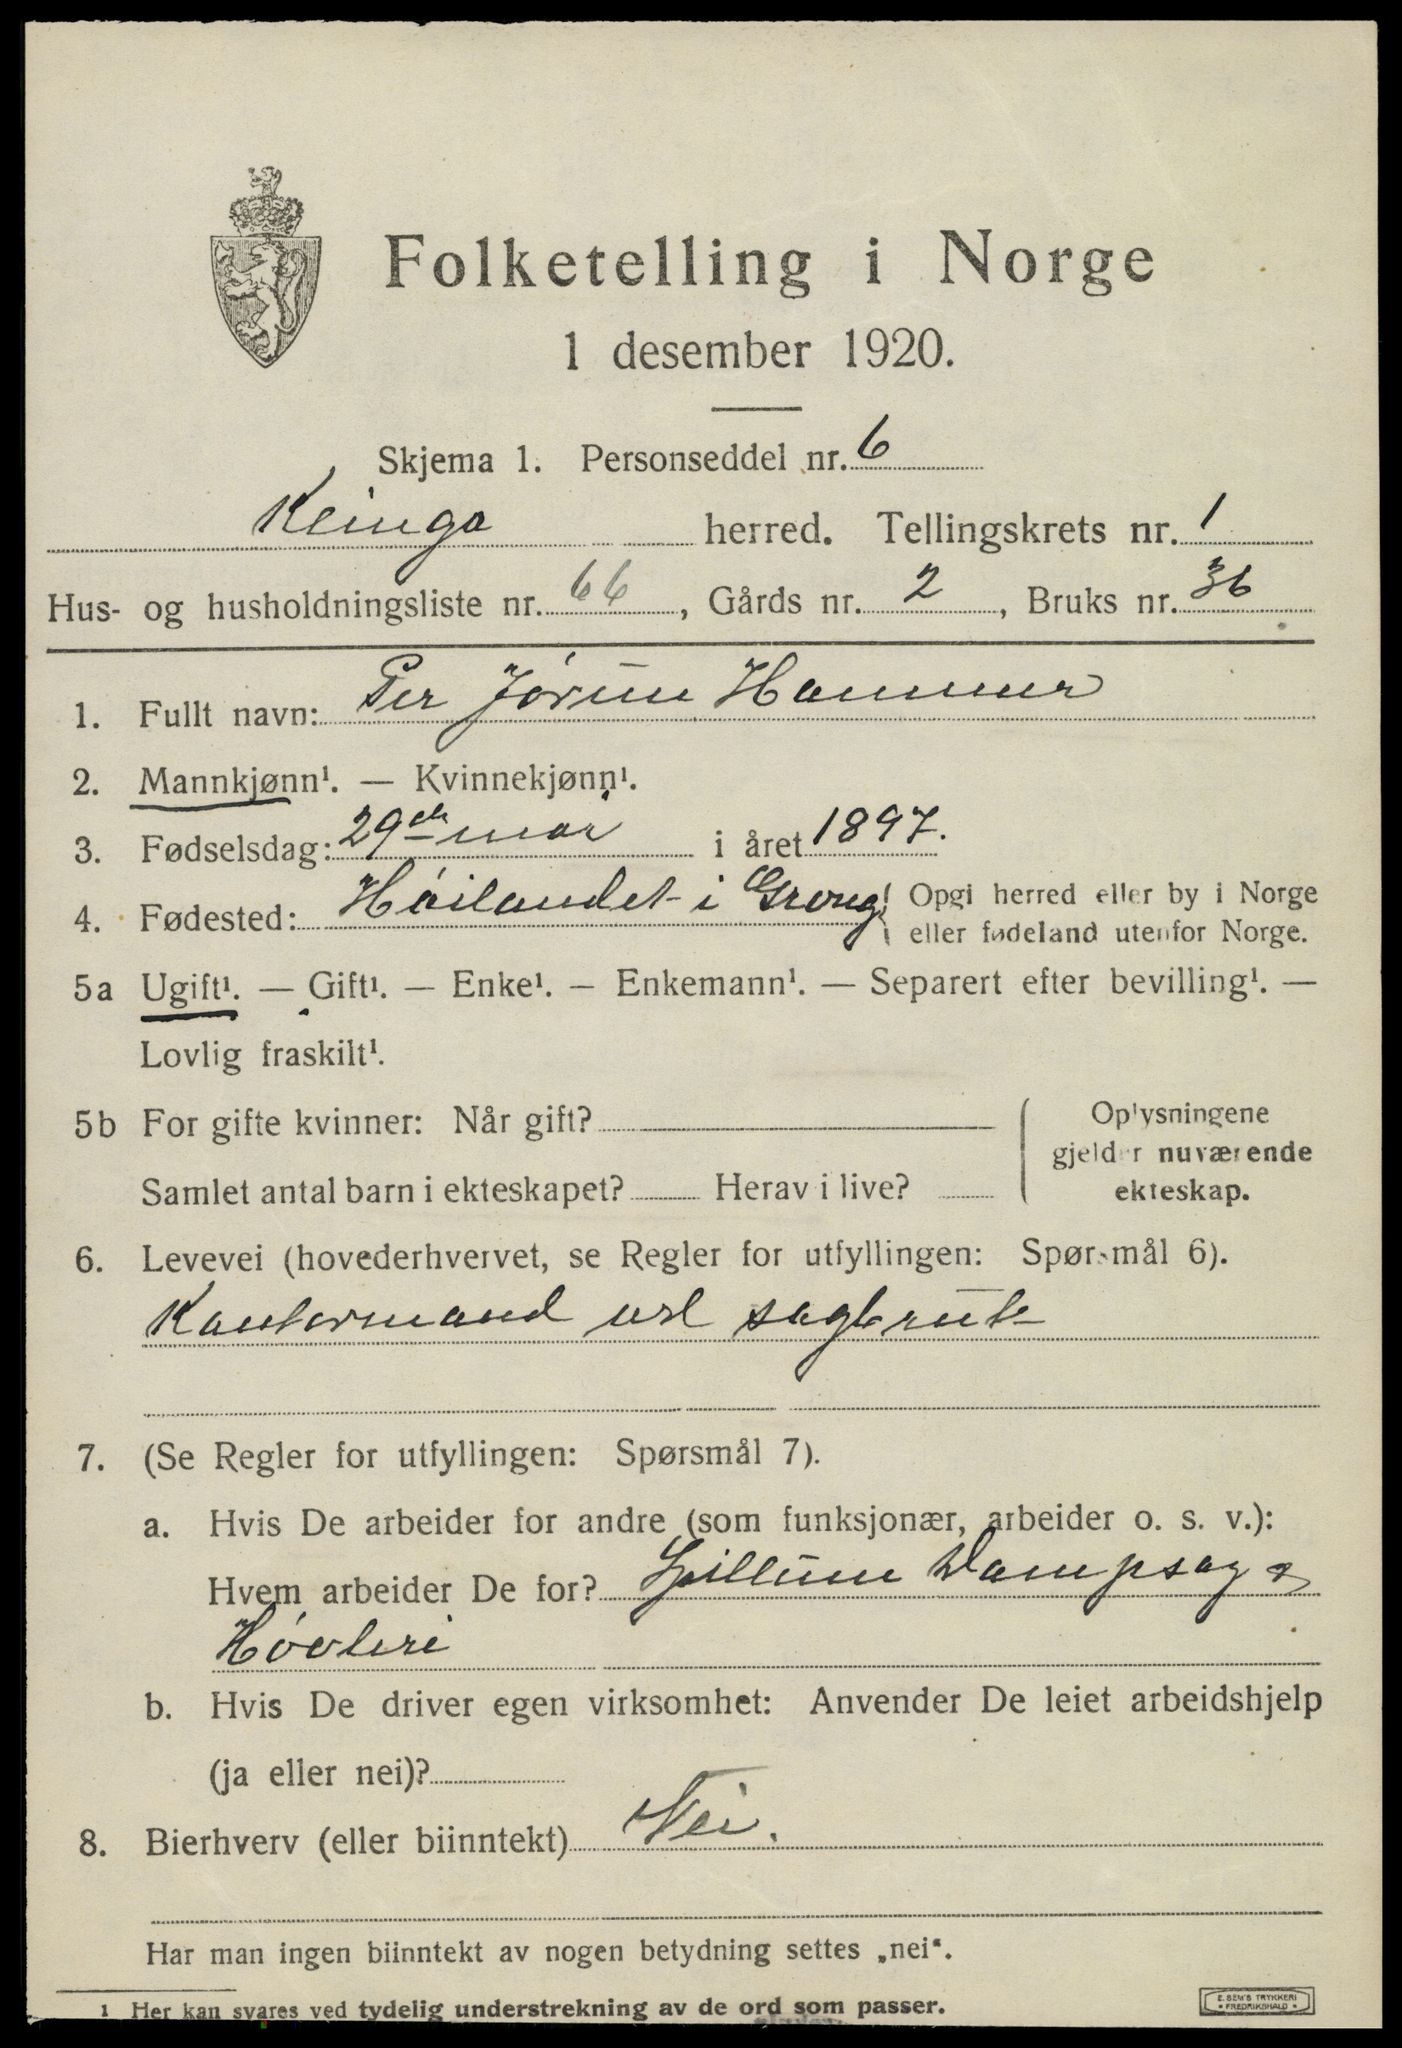 Folketelling i Norge
1 desember 1920.
Skjema 1. Personseddel nr. 6
Klinga herred. Tellingskrets nr. 1
Hus- og husholdningsliste nr. 66, Gårds nr. 2, Bruks nr. 36
1. Fullt navn: Per Jørum Hammer
2. Mannkjønn¹. — Kvinnekjønn¹.
3. Fødselsdag: 29de mai i året 1897.
4. Fødested: Høilandet i Grong { Opgi herred eller by i Norge
eller fødeland utenfor Norge.
5a Ugift¹. — Gift¹. — Enke¹. — Enkemann¹. — Separert efter bevilling¹. —
Lovlig fraskilt¹.
5b For gifte kvinner: Når gift?
Samlet antal barn i ekteskapet? Herav i live?
Oplysningene
gjelder nuværende
ekteskap.
6. Levevei (hovederhvervet, se Regler for utfyllingen: Spørsmål 6).
Kontormand ved sagbruk
7. (Se Regler for utfyllingen: Spørsmål 7).
a. Hvis De arbeider for andre (som funksjonær, arbeider o. s. v.):
Hvem arbeider De for? Spillum Dampsag &
Høvleri
b. Hvis De driver egen virksomhet: Anvender De leiet arbeidshjelp
(ja eller nei)?
8. Bierhverv (eller biinntekt) Nei.
Har man ingen biinntekt av nogen betydning settes „nei“.
1 Her kan svares ved tydelig understrekning av de ord som passer.
E. SEM'S TRYKKERI
• FREDRIKSHALD •